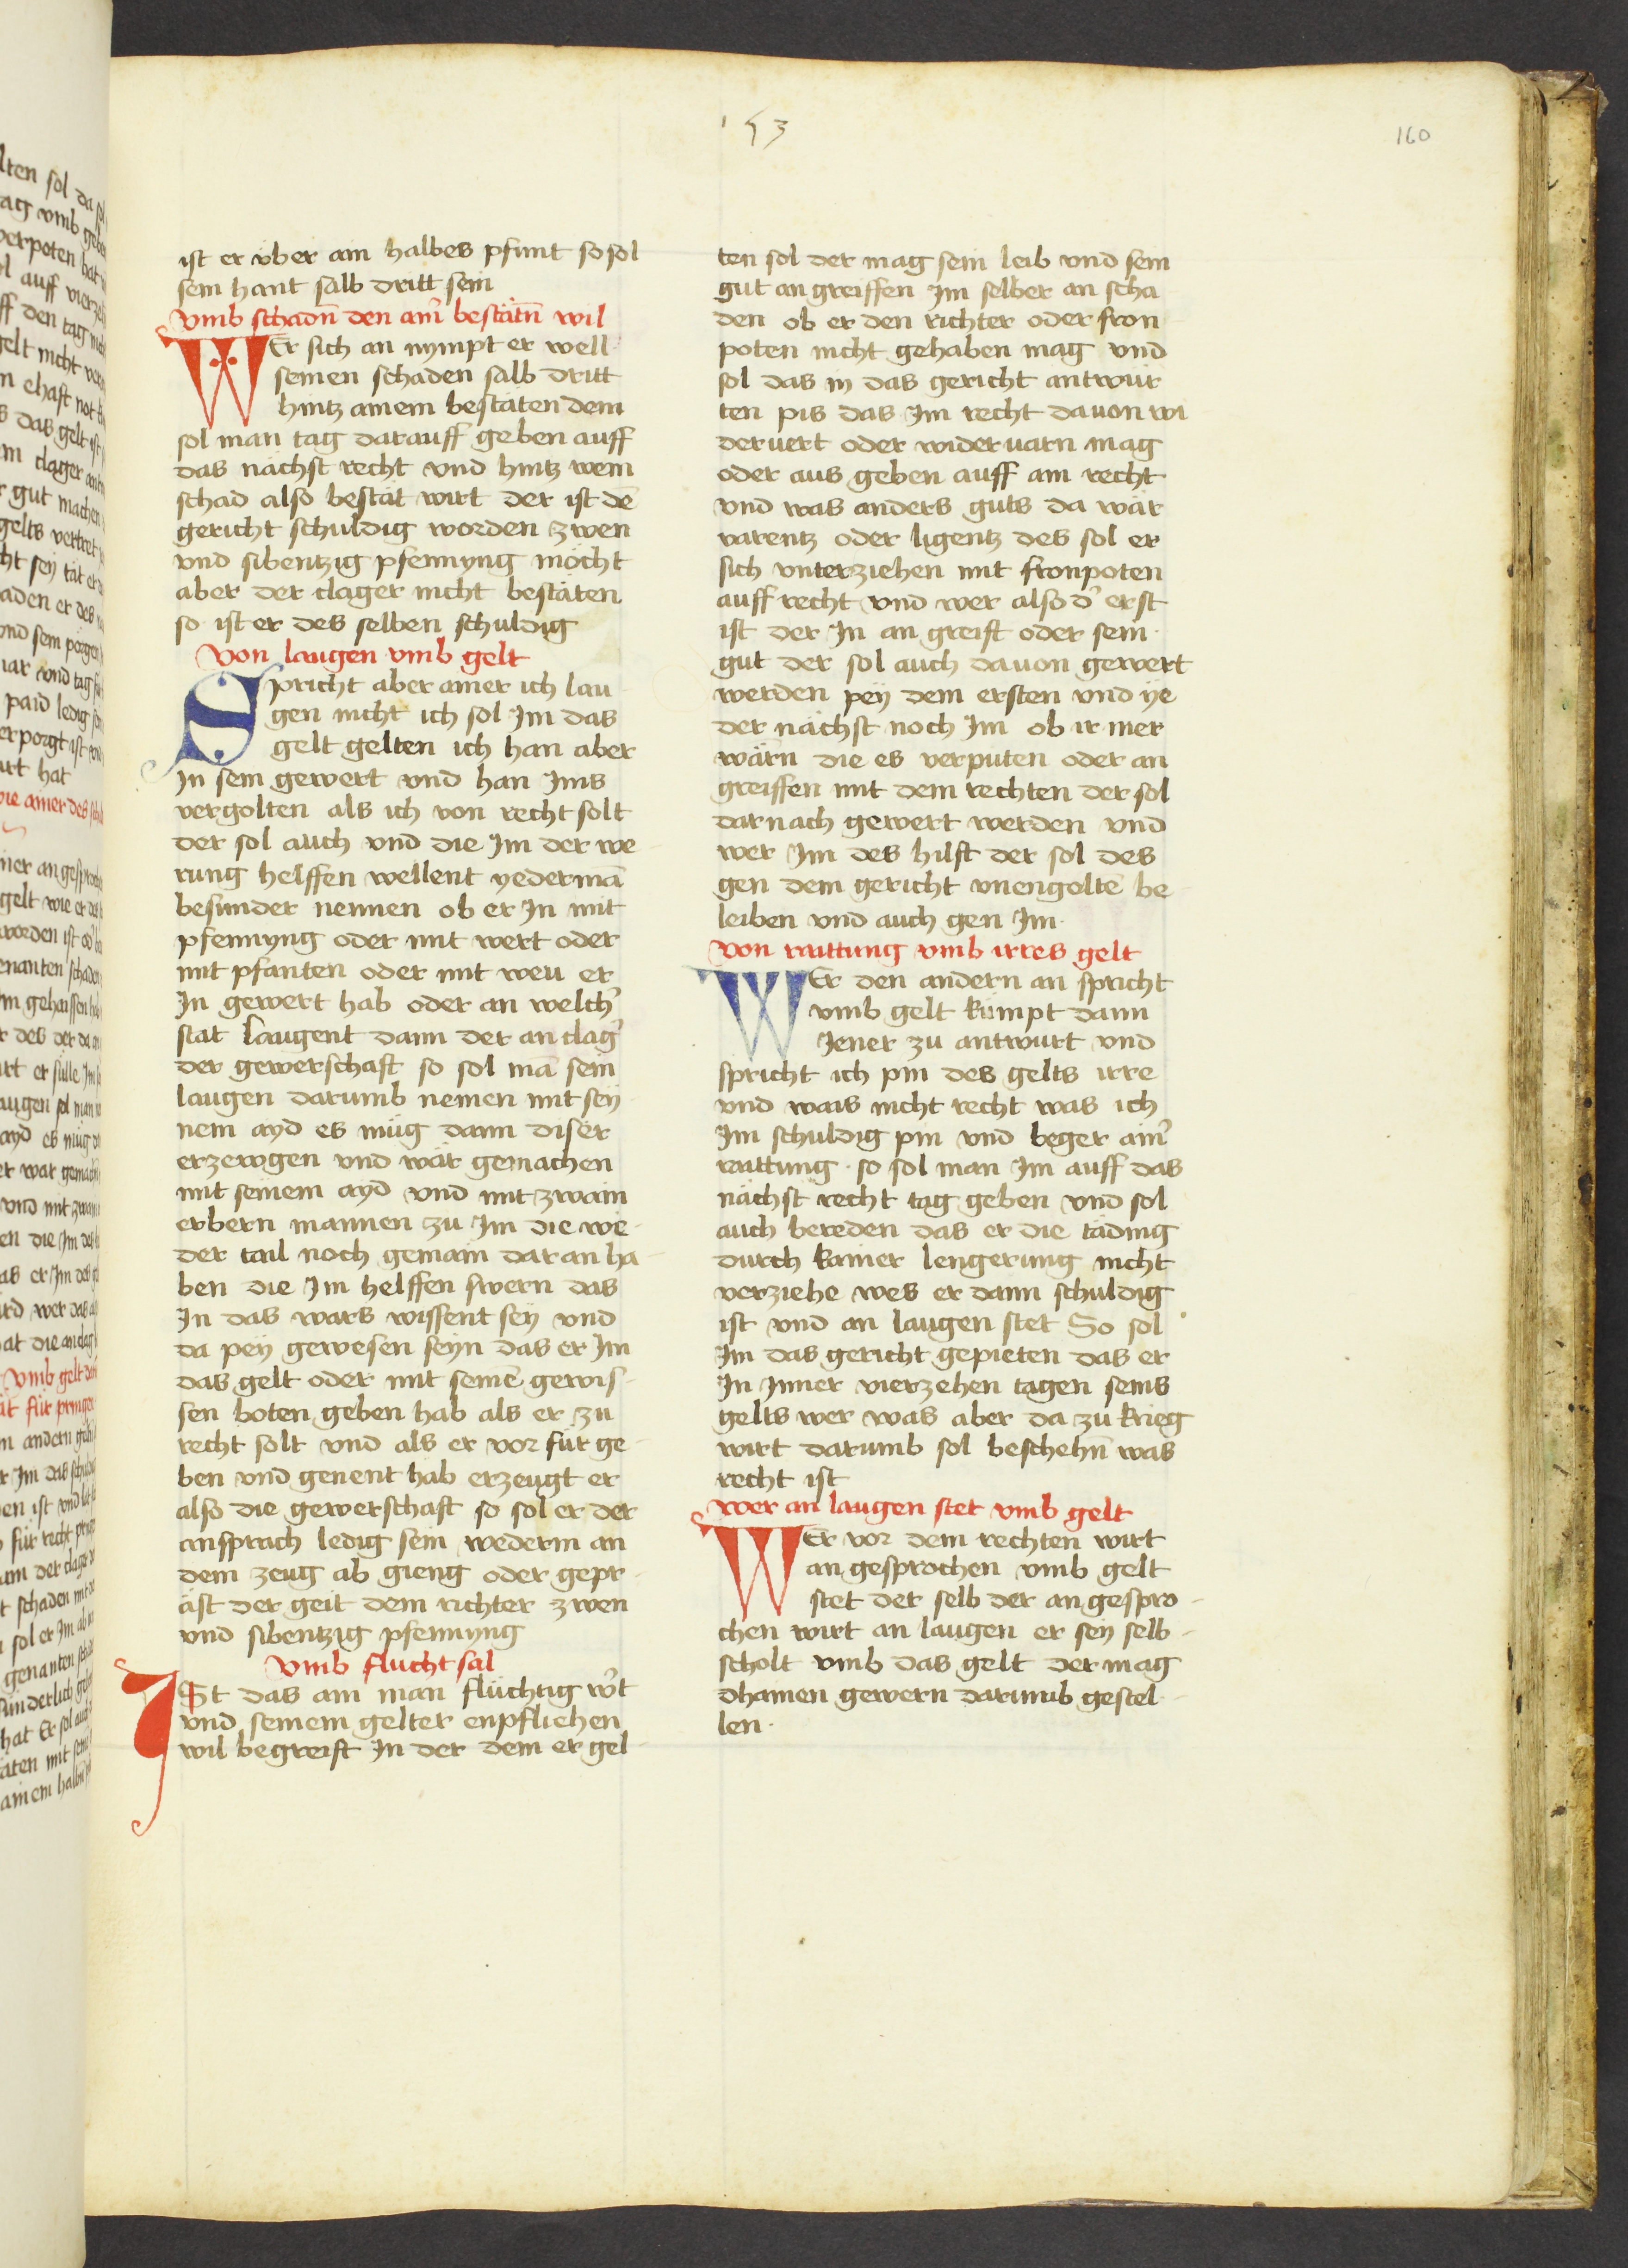 153
160
ist er vber ain halbes pfunt so sol
sein hant salb dritt sein
vmb schadn̄ den ainˀ bestätn̄ wil
WEr sich an nympt er well
seinen schaden salb dritt
hintz ainem bestäten dem
sol man tag darauff geben auff
das nächst recht vnd hintz wem
schad also bestät wirt der ist dē
gericht schuldig worden zwen
vnd sibentzig pfennyng möcht
aber der clager nicht bestäten
so ist er des selben schuldig
Von laugen vmb gelt
Spricht aber ainer ich lau
gen nicht ich sol Im das
gelt gelten ich han aber
In sein gewert vnd han Ims
vergolten als ich von recht solt
der sol auch vnd die Im der we
rung helffen wellent yedermā
besunder nennen ob er In mit
pfennyng oder mit wert oder
mit pfanten oder mit weu er
In gewert hab oder an welchˀ
stat laugent dann der an clagˀ
der gewerschaft so sol mā sein
laugen darumb nemen mit sey
nem ayd es müg dann diser
erzewgen vnd wär gemachen
mit seinem ayd vnd mit zwain
erbern mannen zu Im die we
der tail noch gemain dar an ha
ben die Im helffen swern das
In das wars wissent sey vnd
da pey gewesen seyn das er Im
das gelt oder mit seinē gewis
sen boten geben hab als er zu
recht solt vnd als er vor für ge
ben vnd genent hab erzeugt er
also die gewerschaft so sol er der
ansprach ledig sein wederm an
dem zeug ab gieng oder gepr
äst der geit dem richter zwen
vnd sibentzig pfennyng
Vmb flucht sal
ISt das ain man flüchtig wˀt
vnd seinem gelter enpfliehen
wil begreift In der dem er gel
ten sol der mag sein leib vnd sein
gut an greiffen Im selber an scha
den ob er den richter oder fron
poten nicht gehaben mag vnd
sol das in das gericht antwur
ten pis das Im recht dauon wi
deruert oder wideruarn mag
oder aus geben auff ain recht
vnd was anders guts da wär
varentz oder ligentz des sol er
sich vnterziehen mit fronpoten
auff recht vnd wer also dˀ erst
ist der In an greift oder sein
gut der sol auch dauon gewert
werden pey dem ersten vnd ye
der nächst noch Im ob ir mer
wärn die es verputen oder an
greiffen mit dem rechten der sol
darnach gewert werden vnd
wer Im des hilft der sol des
gen dem gericht vnengoltē be
leiben vnd auch gen Im
Von raittung vmb irres gelt
WEr den andern an spricht
vmb gelt kümpt dann
Jener zu antwurt vnd
spricht ich pin des gelts irre
vnd wais nicht recht was ich
Im schuldig pin vnd beger ainˀ
raittung · so sol man Im auff das
nächst recht tag geben vnd sol
auch bereden das er die täding
durch kainer lengerung nicht
verziehe wes er dann schuldig
ist vnd an laugen stet So sol
Im das gericht gepieten das er
In Inner vierzehen tagen seins
gelts wer was aber da zu krieg
wirt darumb sol beschehn̄ was
recht ist
Wer an laugen stet vmb gelt
WEr vor dem rechten wirt
an gesprochen vmb gelt
stet der selb der an gespro
chen wirt an laugen er sey selb
scholt vmb das gelt der mag
dhainen gewern darumb gestel
len ·